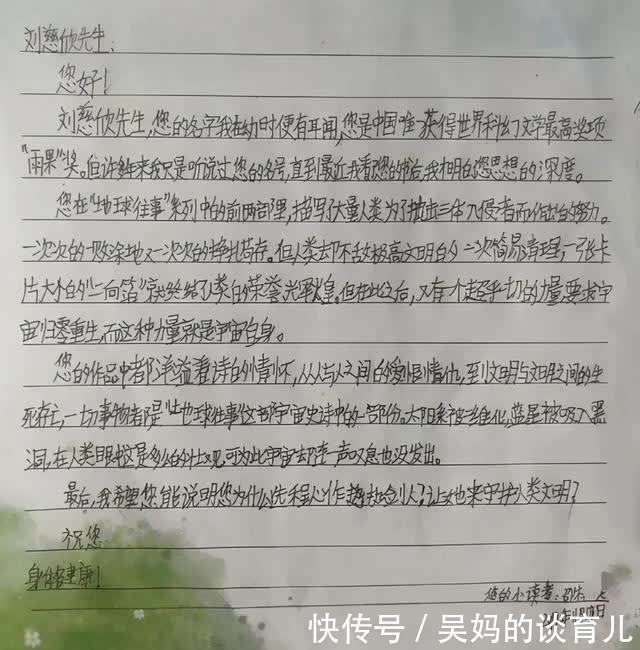 刘慈欣先生:
您好!
刘慈欣先生,您的名字我在幼时便有耳闻,您是中国唯一获得世界科幻文学最高奖项
"雨果"奖。但许多年来我只是听说过您的名号,直到最近我看您的书后,我才明白您思想的深度。
您在"地球往事"系列中的前两部里,描写了大量人类为了抵抗三体入侵者而作出的努力。
一次次的一败涂地又一次次的挣扎苟存。但人类却不敌极高文明的一次简易清理,一张卡
片大小的"二向箔"就终结了人类的荣誉光辉煌。但在此之后,又有一个超乎一切的力量,要求宇
宙归零重生,而这种力量就是宇宙自身。
您的作品中都洋溢着诗的情怀,从人与人之间的爱恨情仇,到文明与文明之间的生
死存亡,一切事物都是"地球往事"这部宇宙史诗中的一部份。太阳系被二维化,蓝星被吸入黑
洞,在人类眼中这是多么的壮观,可为此宇宙却连一声叹息也没发出。
最后,我希望您能说明您为什么选程心作为执剑人?让她来守护人类文明?
祝您
身体健康!
您的小读者:
快传号/吴妈的谈育儿